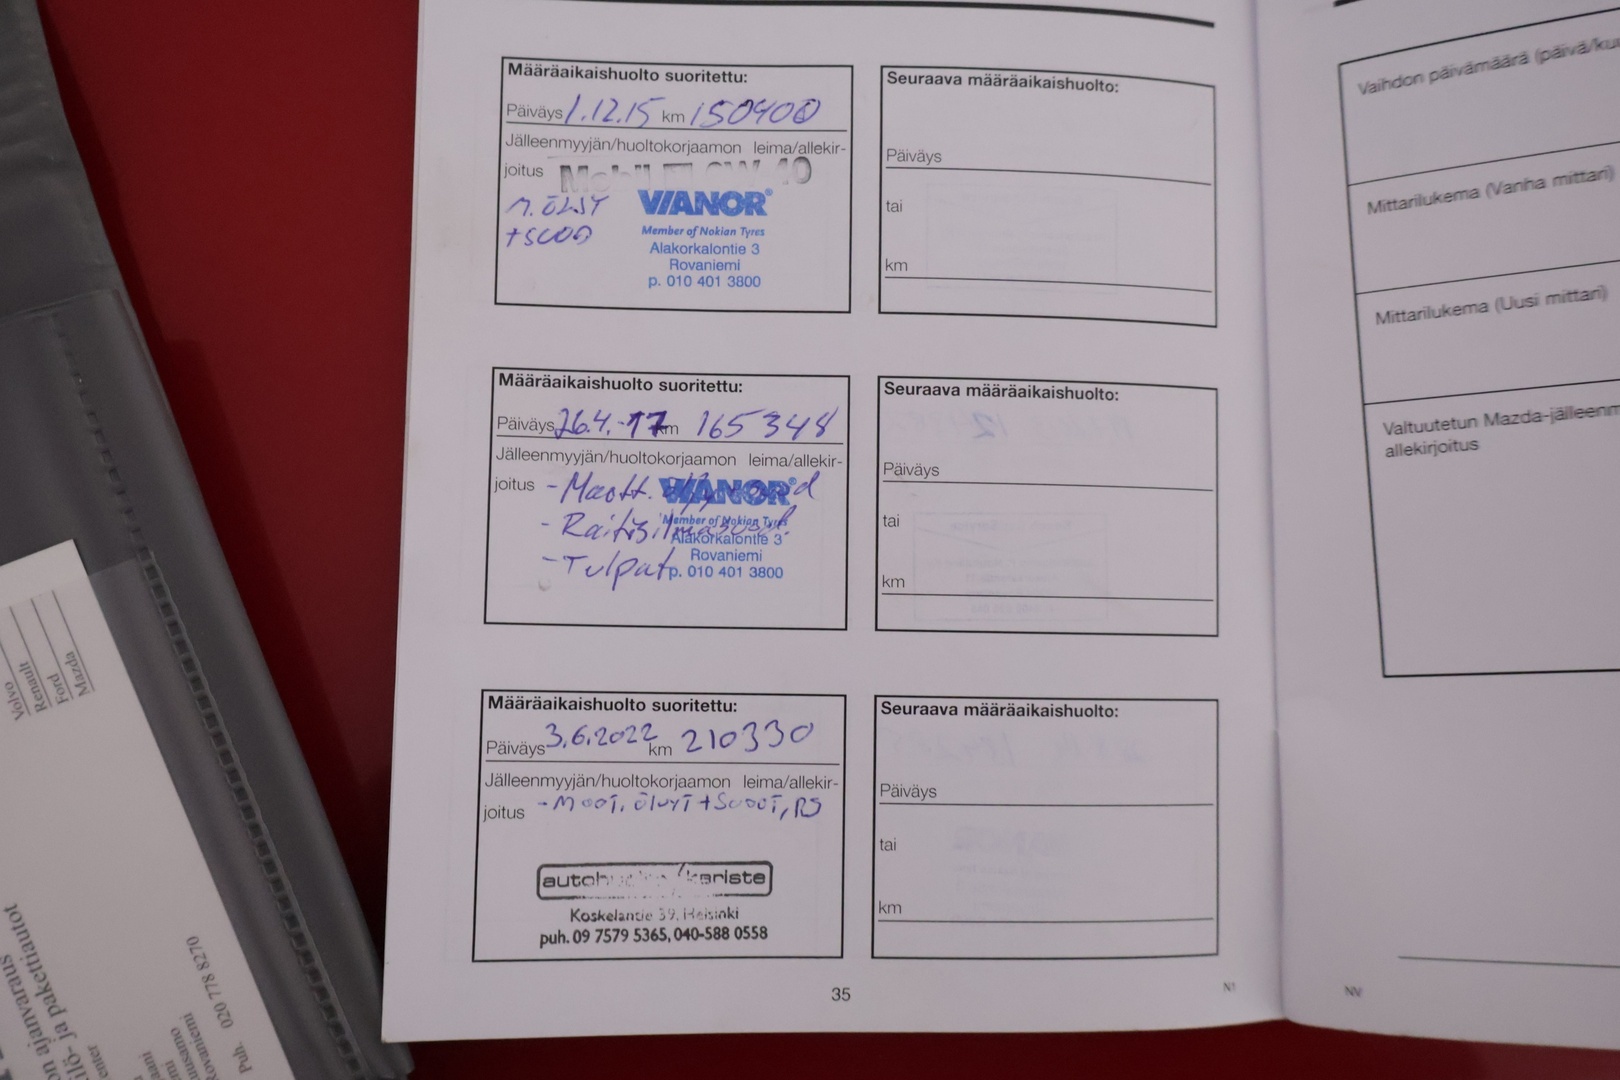 Määräaikaishuolto suoritettu:
Päiväys 1.12.15 km 150400
Jälleenmyyjän/huoltokorjaamon leima/allekir-
joitus
M. ÖLJYT
VIANOR
Member of Nokian Tyres
Alakorkalontie 3
Rovaniemi
p. 010 401 3800
Seuraava määräaikaishuolto:
Päiväys
tai
km
Määräaikaishuolto suoritettu:
Päiväys 26.4.-17 km 165348
Jälleenmyyjän/huoltokorjaamon leima/allekir-
joitus
- Raitisilmasuod
- Tulpat
VIANOR
Member of Nokian Tyres
Alakorkalontie 3
Rovaniemi
p. 010 401 3800
Seuraava määräaikaishuolto:
Päiväys
tai
km
Määräaikaishuolto suoritettu:
Päiväys 3.6.2022 km 210330
Jälleenmyyjän/huoltokorjaamon leima/allekir-
joitus
Koskelantie 39, Helsinki
puh. 09 7579 5365, 040-588 0558
Seuraava määräaikaishuolto:
Päiväys
tai
km
35
N1
Vaihdon päivämäärä (päivä/ku
Mittarilukema (Vanha mittari)
Mittarilukema (Uusi mittari)
Valtuutetun Mazda-jälleenm
allekirjoitus
NV
Volvo
Renault
Ford
Mazda
on ajanvaraus
ilö- ja pakettiautot
enter
Puh. 020 778 8270